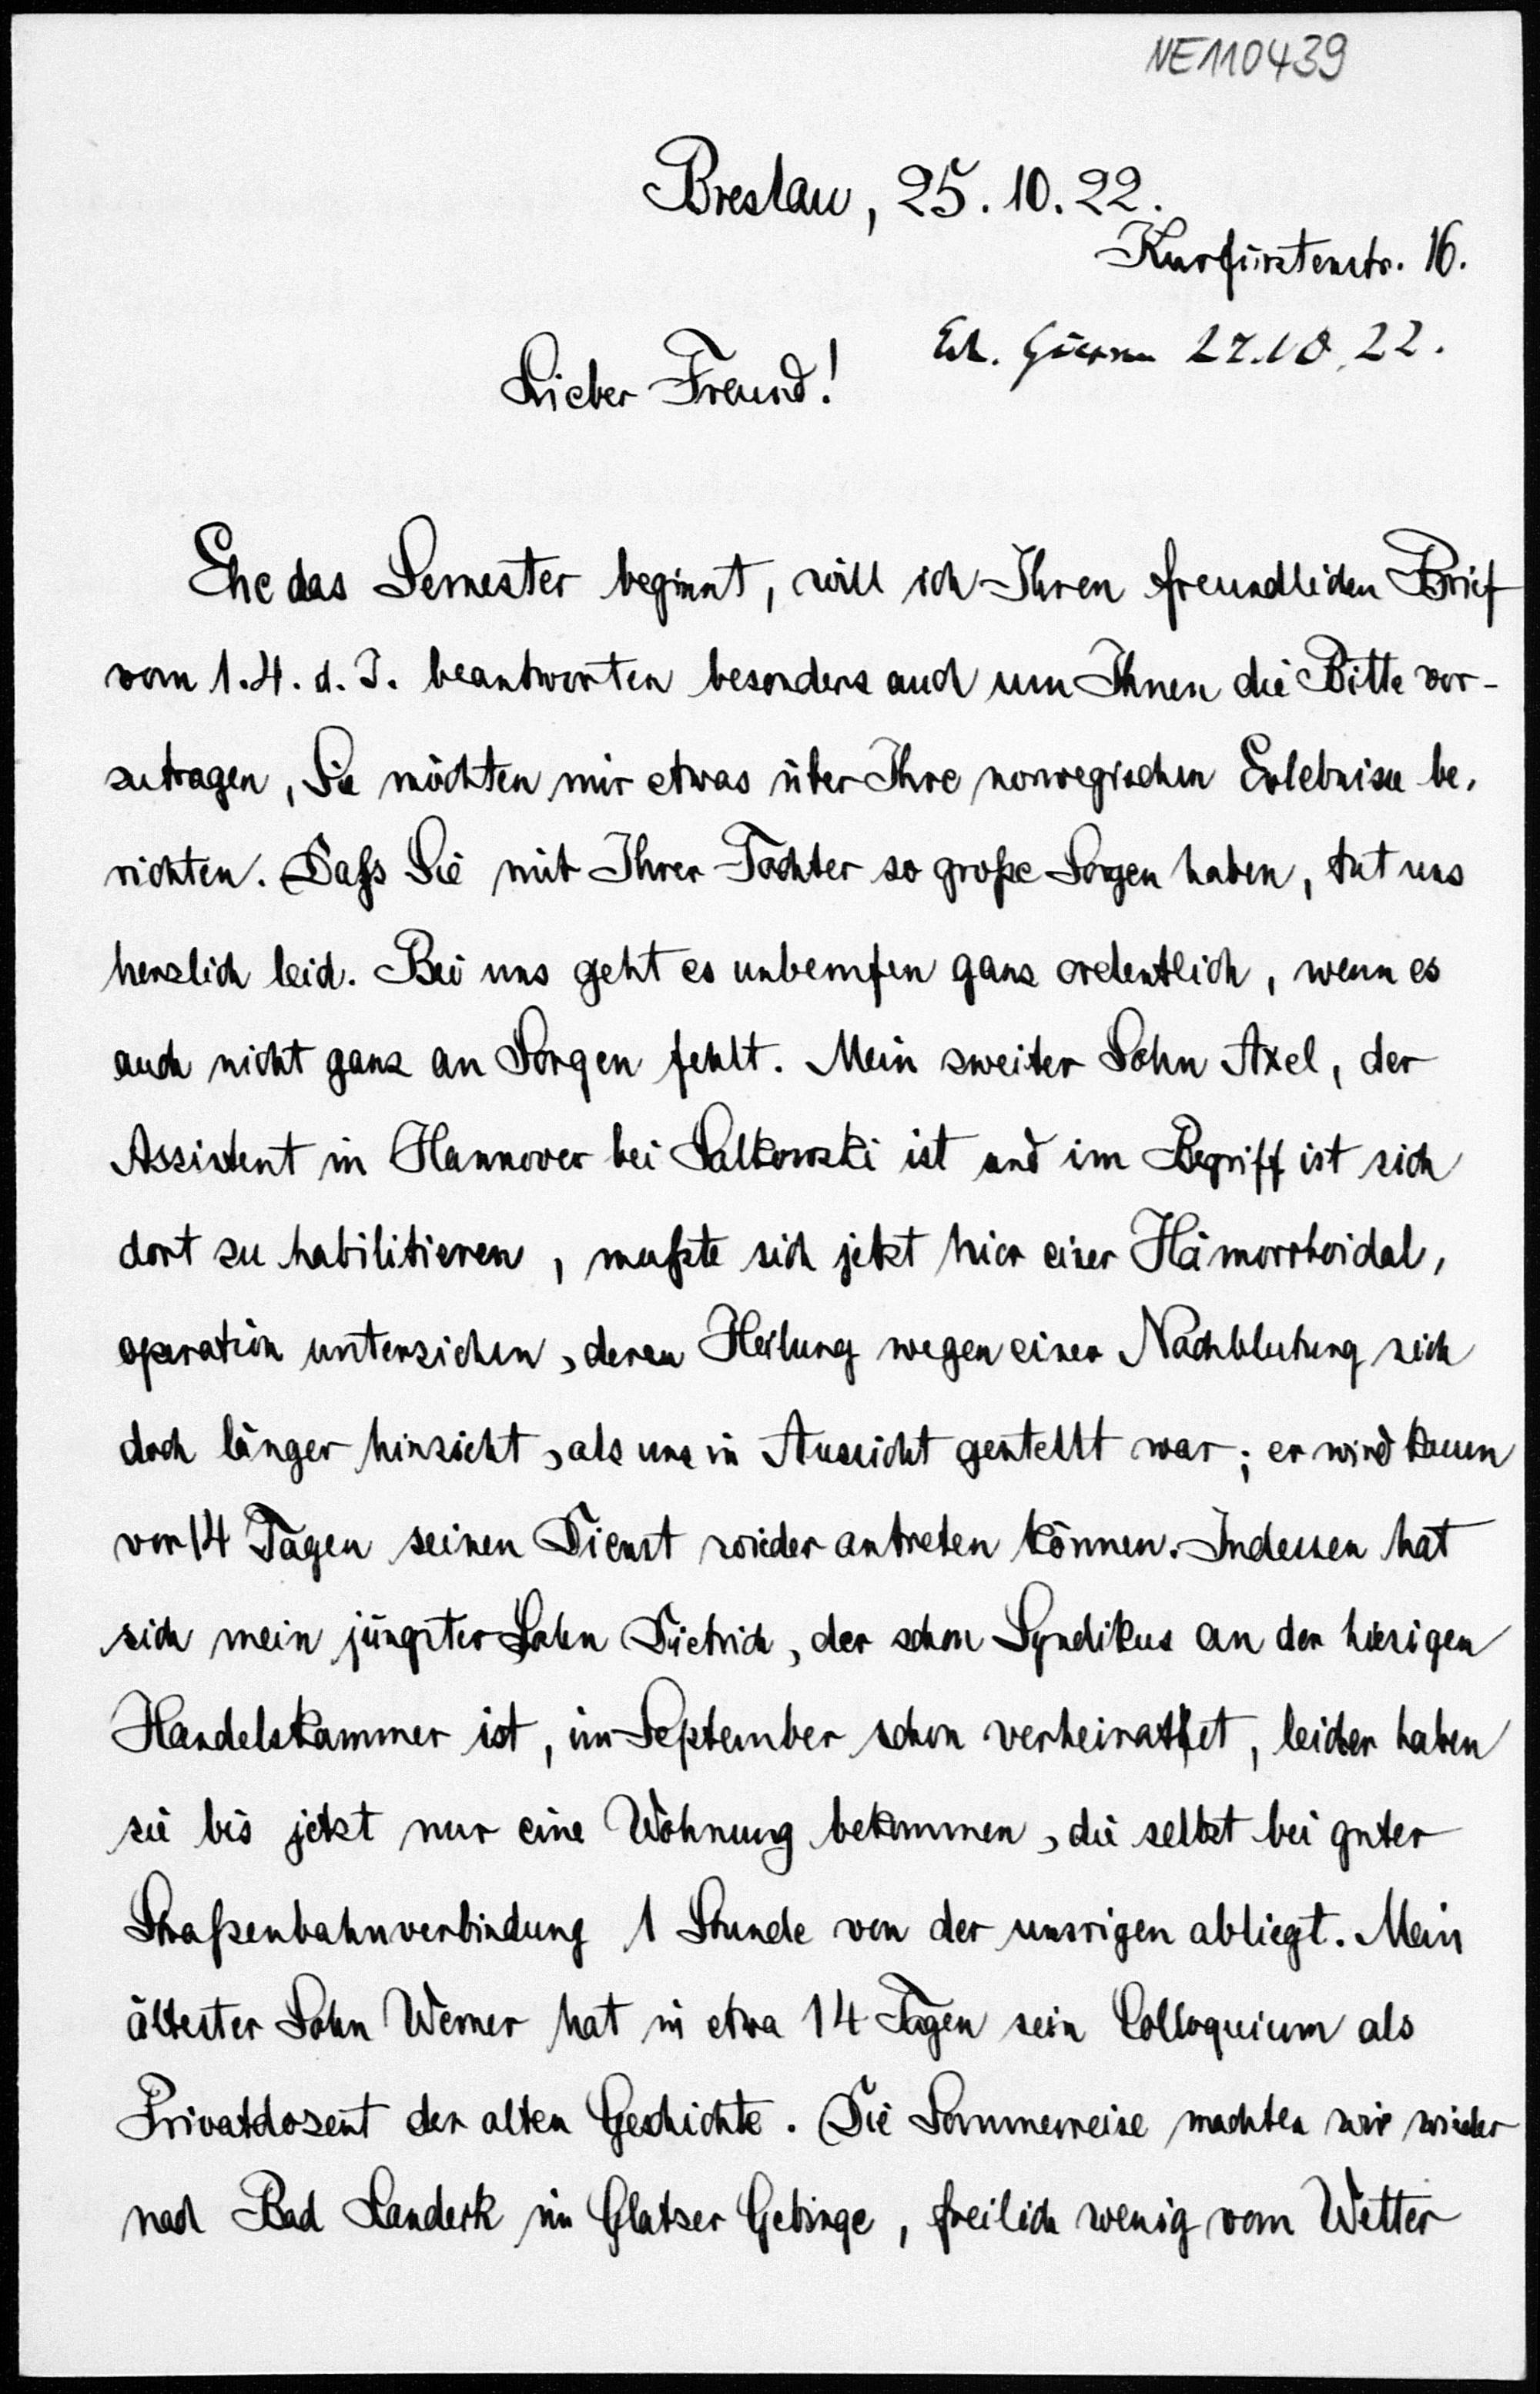 NE110439
Breslau, 25. 10. 22.
Kurfürstenstr. 16.
27.10.22.
Lieber Freund!
Ehe das Semester beginnt, will ich Ihren freundlichen Brief
vom 1.4. d. J. beantworten besonders auch um Ihnen die Bitte vor-
zutragen, Sie möchten mir etwas über Ihre norwegischen Erlebnisse be-
richten. Daſs Sie mit Ihrer Tochter so große Sorgen haben, tut uns
herzlich leid. Bei uns geht es unberufen ganz ordentlich, wenn es
auch nicht ganz an Sorgen fehlt. Mein zweiter Sohn Axel, der
Assistent in Hannover bei Salkowski ist und im Begriff ist sich
dort zu habilitieren, mußte sich jetzt hier einer Hämorrhoidal-
operation unterziehen, deren Heilung wegen einer Nachblutung sich
doch länger hinzieht, als uns in Aussicht gestellt war; er wird kaum
vor 14 Tagen seinen Dienst wieder antreten können. Indessen hat
sich mein jüngster Sohn Dietrich, der schon Syndikus an der hiesigen
Handelskammer ist, im September schon verheirathet, leider haben
sie bis jetzt nur eine Wohnung bekommen, die selbst bei guter
Straßenbahnverbindung 1 Stunde von der unsrigen abliegt. Mein
ältester Sohn Werner hat in etwa 14 Tagen sein Colloquium als
Privatdozent der alten Geschichte. Die Sommerreise machten wir wieder
nach Bad Landeck im Glatzer Gebirge, freilich wenig vom Wetter